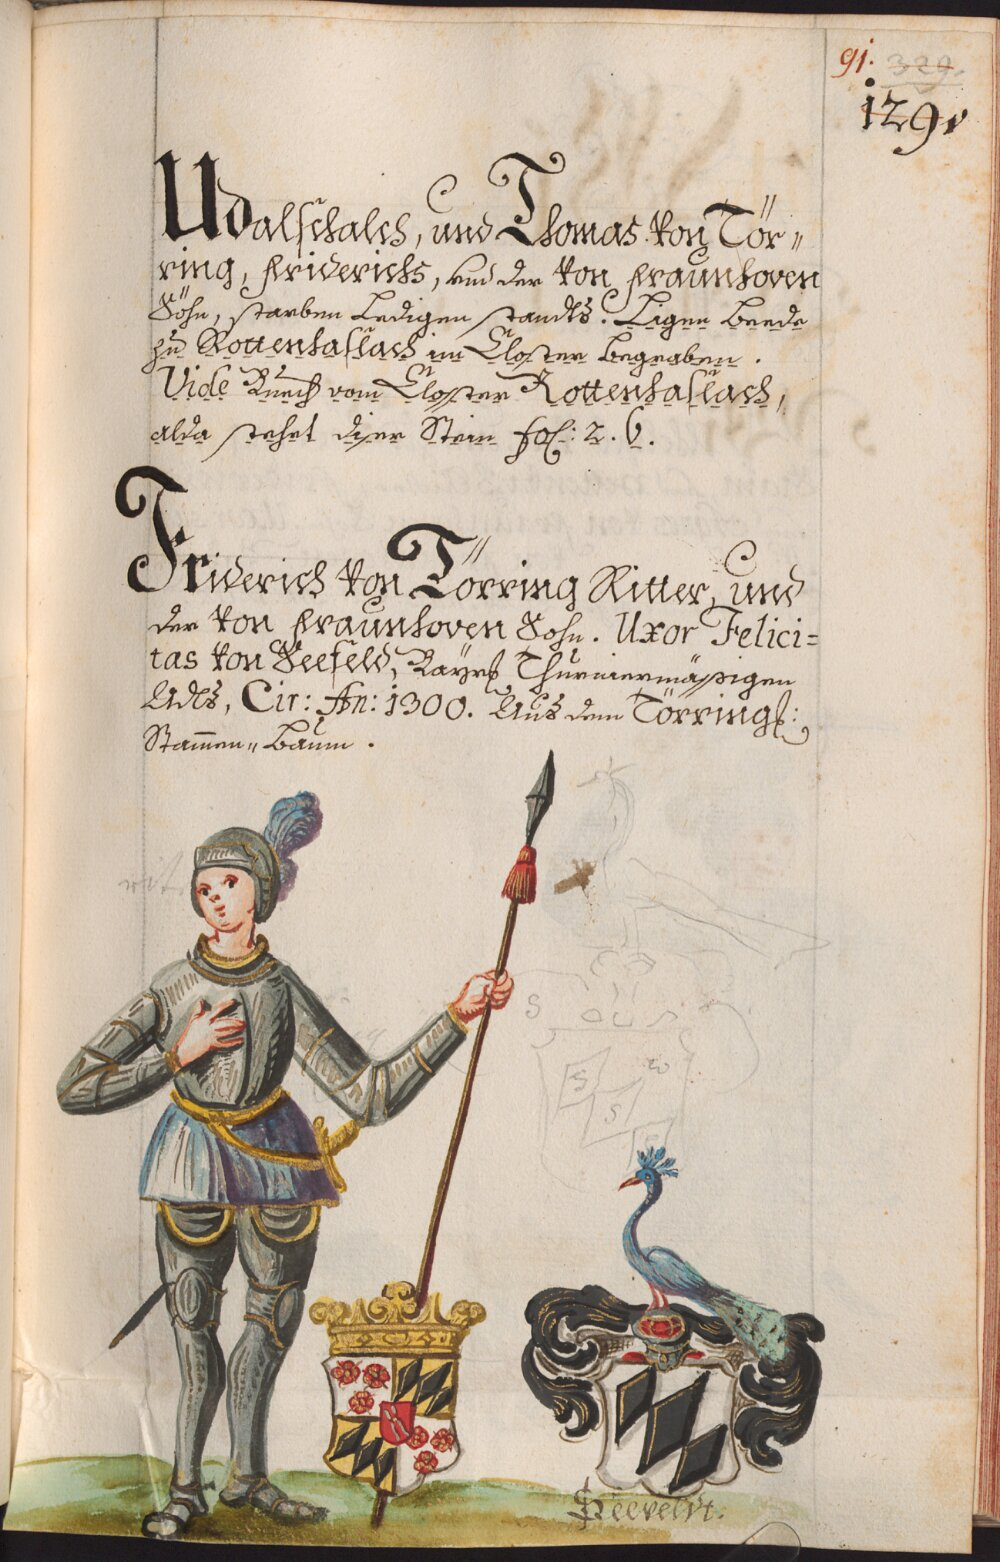 91. 329.
129v
Udalschalch, und Thomas von Tör„
ring, Friderichs, und der von Fraunhoven
Söhn, starben Ledigen standts. Ligen beede
zu Rottenhaslach im Closter begraben.
Vide Buech vom Closter Rottenhaslach,
alda stehet diser Stein fol: 2. 6.
Friderich von Törring Ritter, und
der von Fraunhoven Sohn. Uxor Felici=
tas von Seefeld, Bayrs Thurniermässigen
Adls, Cir: An: 1300. Aus dem Törrings:
Stammen„ baum.
S
S
W
S
S
Seeveldt.